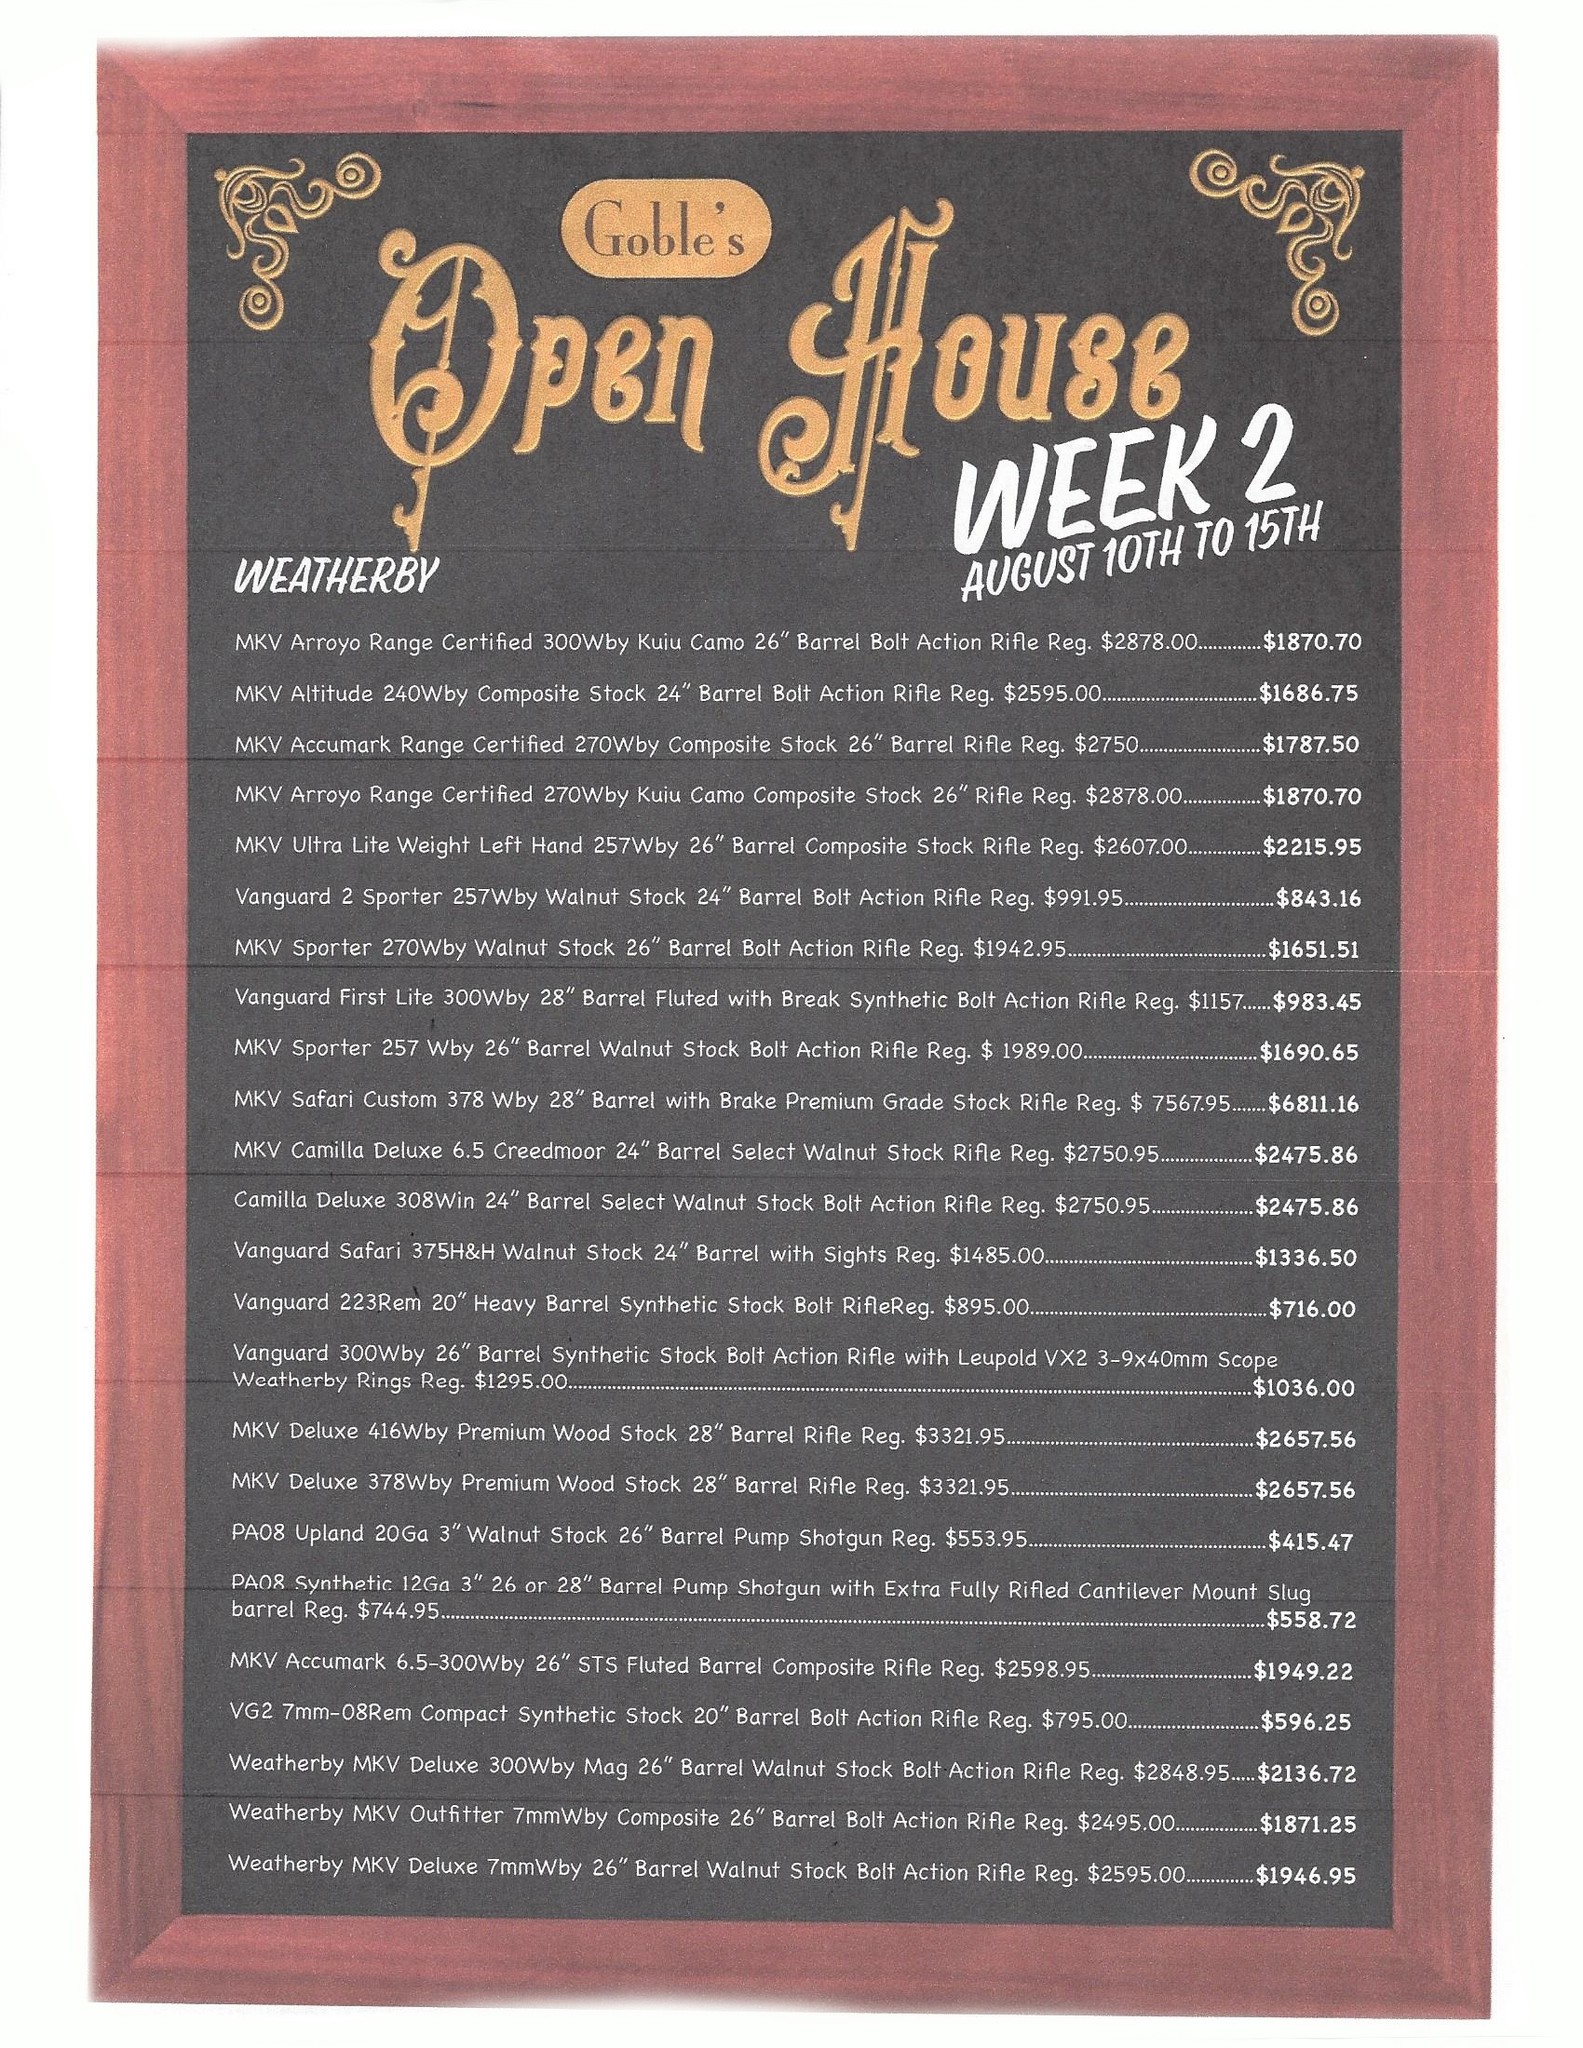 Goble's
Open House
WEEK 2
AUGUST 10TH TO 15TH
WEATHERBY
MKV Arroyo Range Certified 300Wby Kuiu Camo 26" Barrel Bolt Action Rifle Reg. $2878.00.............$1870.70
MKV Altitude 240Wby Composite Stock 24" Barrel Bolt Action Rifle Reg. $2595.00................................$1686.75
MKV Accumark Range Certified 270Wby Composite Stock 26" Barrel Rifle Reg. $2750.........................$1787.50
MKV Arroyo Range Certified 270Wby Kuiu Camo Composite Stock 26" Rifle Reg. $2878.00................$1870.70
MKV Ultra Lite Weight Left Hand 257Wby 26" Barrel Composite Stock Rifle Reg. $2607.00...............$2215.95
Vanguard 2 Sporter 257Wby Walnut Stock 24" Barrel Bolt Action Rifle Reg. $991.95...............................$843.16
MKV Sporter 270Wby Walnut Stock 26" Barrel Bolt Action Rifle Reg. $1942.95.........................................$1651.51
Vanguard First Lite 300Wby 28" Barrel Fluted with Break Synthetic Bolt Action Rifle Reg. $1157......$983.45
MKV Sporter 257 Wby 26" Barrel Walnut Stock Bolt Action Rifle Reg. $ 1989.00....................................$1690.65
MKV Safari Custom 378 Wby 28" Barrel with Brake Premium Grade Stock Rifle Reg. $ 7567.95.......$6811.16
MKV Camilla Deluxe 6.5 Creedmoor 24" Barrel Select Walnut Stock Rifle Reg. $2750.95...................$2475.86
Camilla Deluxe 308Win 24" Barrel Select Walnut Stock Bolt Action Rifle Reg. $2750.95.....................$2475.86
Vanguard Safari 375H&H Walnut Stock 24" Barrel with Sights Reg. $1485.00...........................................$1336.50
Vanguard 223Rem 20" Heavy Barrel Synthetic Stock Bolt RifleReg. $895.00.................................................$716.00
Vanguard 300Wby 26" Barrel Synthetic Stock Bolt Action Rifle with Leupold VX2 3-9x40mm Scope
Weatherby Rings Reg. $1295.00..............................................................................................................................................$1036.00
MKV Deluxe 416Wby Premium Wood Stock 28" Barrel Rifle Reg. $3321.95...................................................$2657.56
MKV Deluxe 378Wby Premium Wood Stock 28" Barrel Rifle Reg. $3321.95..................................................$2657.56
PA08 Upland 20Ga 3" Walnut Stock 26" Barrel Pump Shotgun Reg. $553.95.................................................$415.47
PA08 Synthetic 12Ga 3" 26 or 28" Barrel Pump Shotgun with Extra Fully Rifled Cantilever Mount Slug
barrel Reg. $744.95...........................................................................................................................................................................$558.72
MKV Accumark 6.5-300Wby 26" STS Fluted Barrel Composite Rifle Reg. $2598.95.................................$1949.22
VG2 7mm-08Rem Compact Synthetic Stock 20" Barrel Bolt Action Rifle Reg. $795.00...........................$596.25
Weatherby MKV Deluxe 300Wby Mag 26" Barrel Walnut Stock Bolt Action Rifle Reg. $2848.95.....$2136.72
Weatherby MKV Outfitter 7mmWby Composite 26" Barrel Bolt Action Rifle Reg. $2495.00.................$1871.25
Weatherby MKV Deluxe 7mmWby 26" Barrel Walnut Stock Bolt Action Rifle Reg. $2595.00..............$1946.95